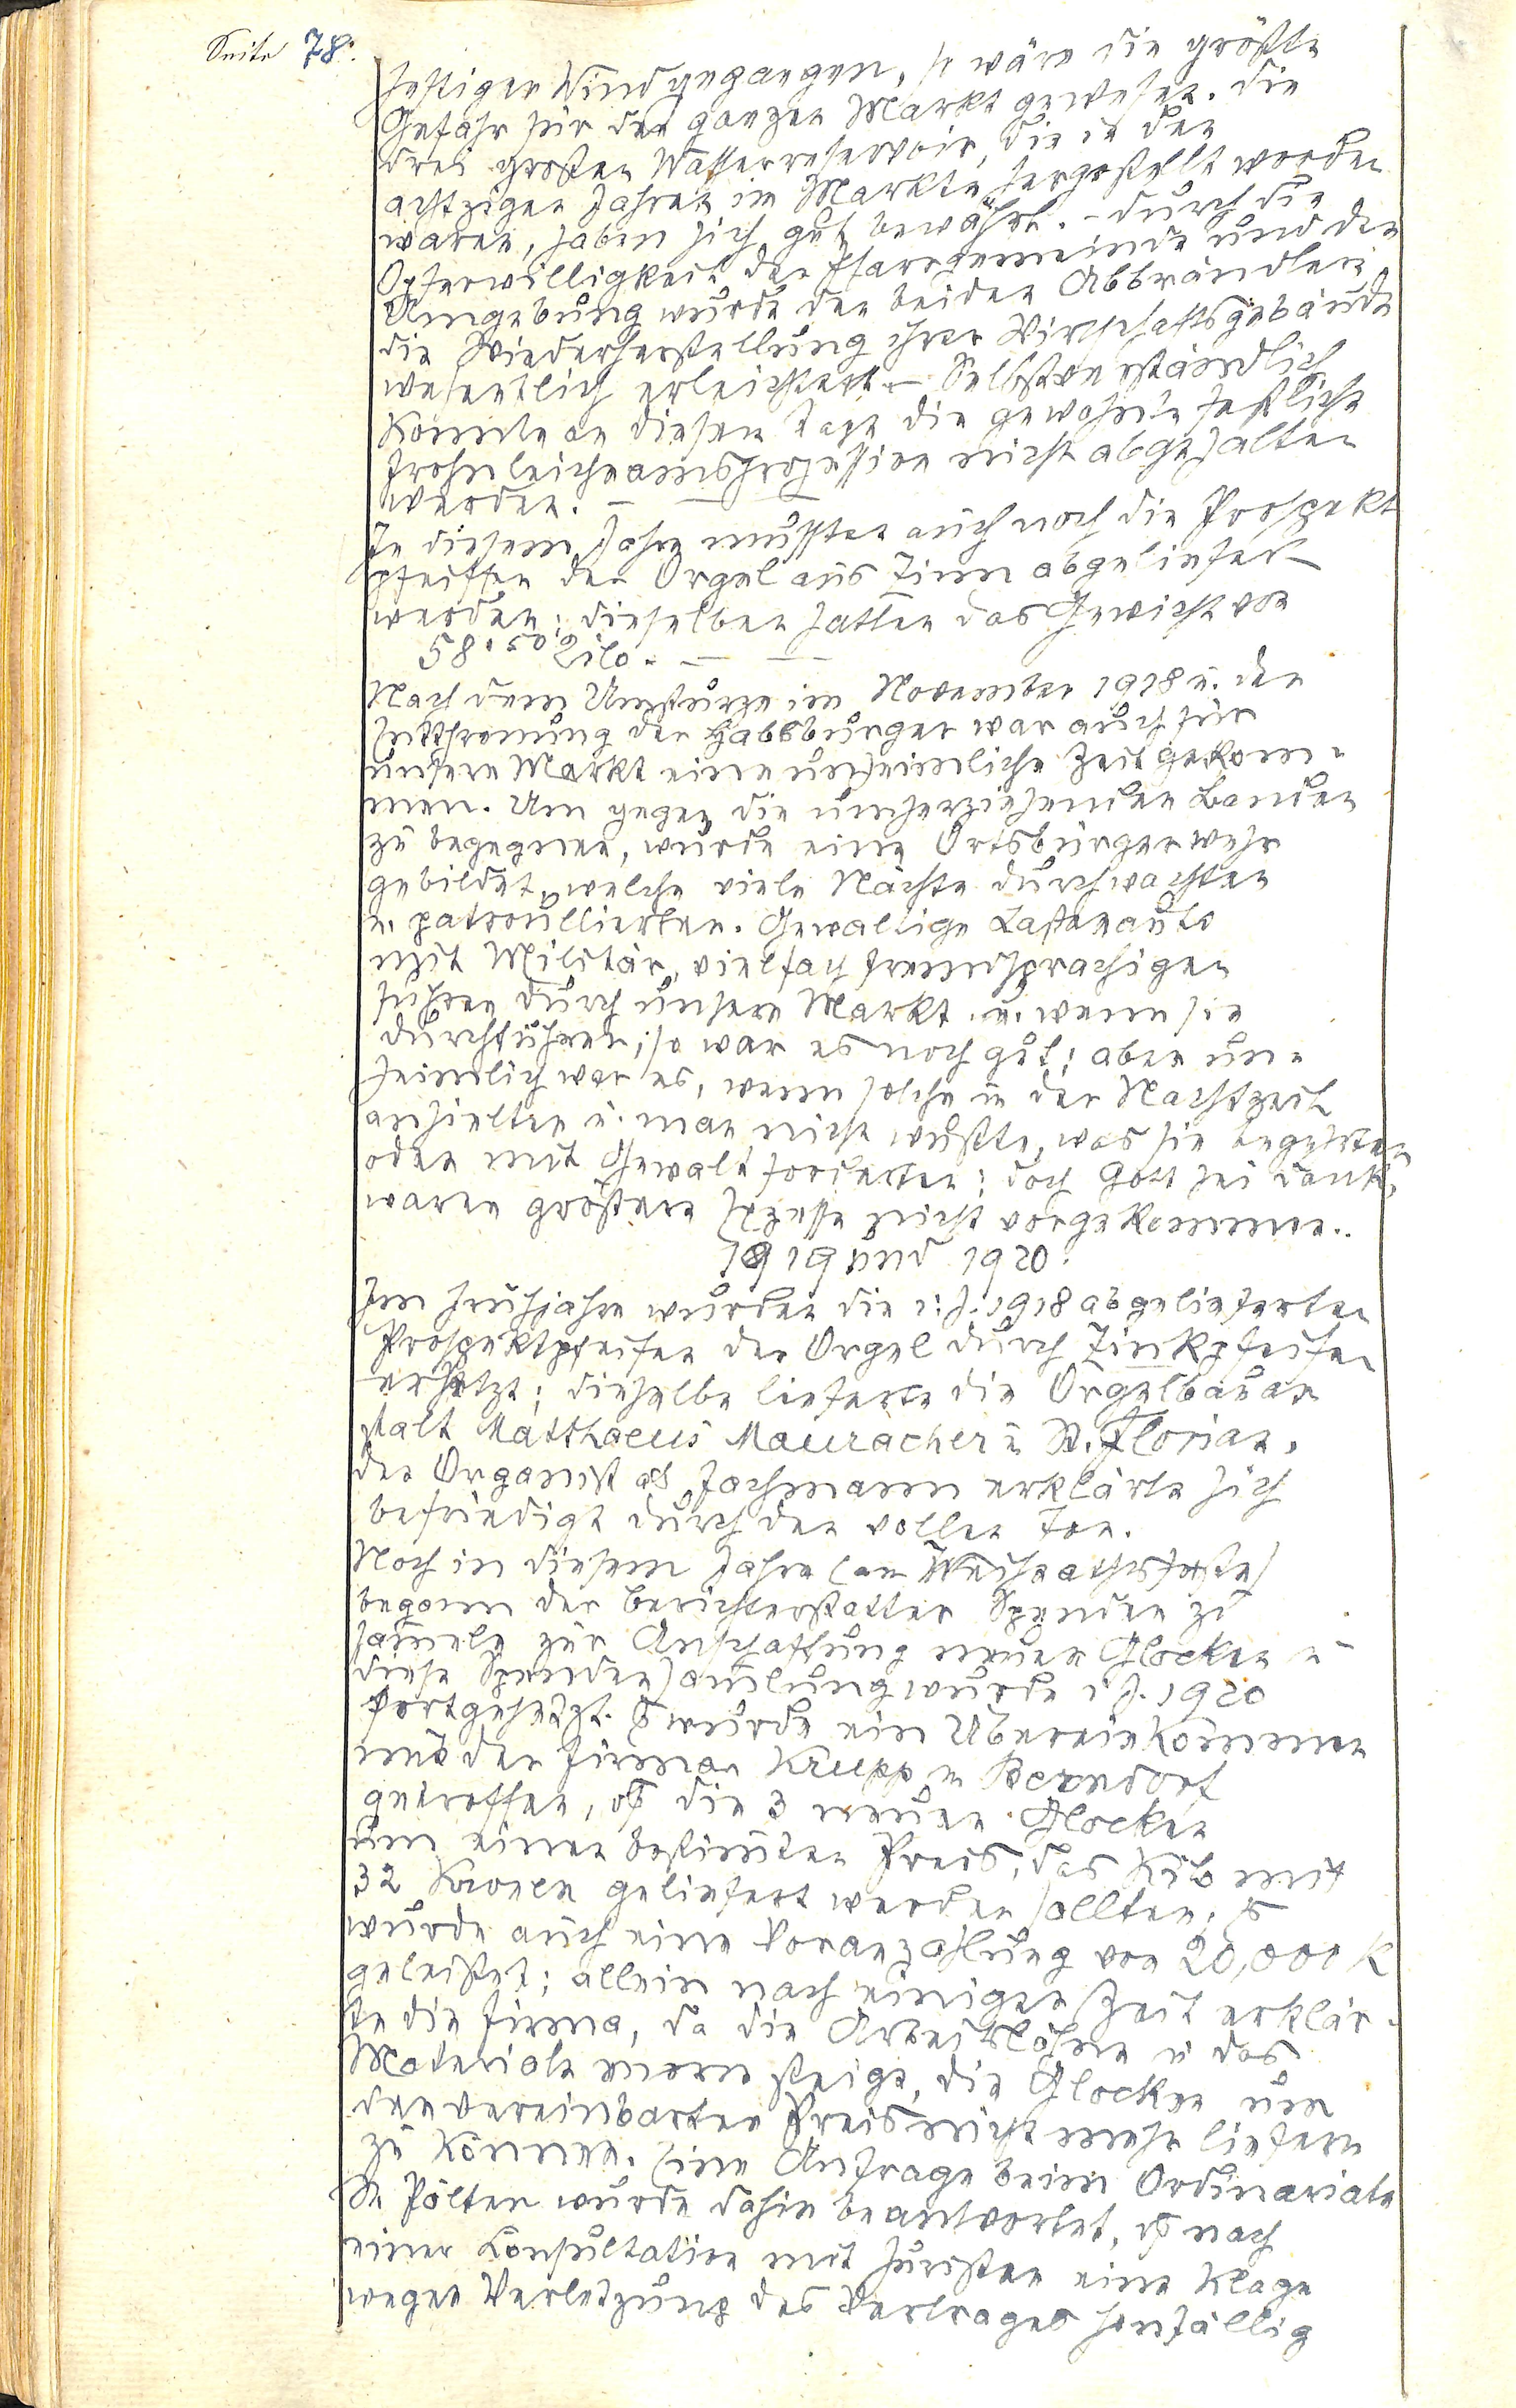 Seite 78.
heftiger Wind gegangen, so wäre die größte
Gefahr für den ganzen Markt gewesen. Die
drei großen Wasserreservoir, die in den
achtziger Jahren im Markte hergestellt worden
waren, haben sich gut bewährt. – Durch die
Opferwilligkeit der Pfarrgemeinde und der
Umgebung wurde den beiden Abbrändlern
die Wiederherstellung ihrer Wirtschaftsgebäude
wesentlich erleichtert. – Selbstverständlich
konnte an diesem Tage die gewohnte festliche
Frohnleichnamsprozession nicht abgehalten
werden. – — —
In diesem Jahre mussten auch noch die Prospekt
pfeiffen der Orgel aus Zinn abgeliefert
werden; dieselben hatten das Gewicht von
58.50 Kilo. — —
Nach dem Umsturze im November 1918 u. der
Entthronung der Habsburger war auch für
unsern Markt eine unheimliche Zeit gekom-
men. Um gegen die umherziehenden Banden
zu begegnen, wurde eine Ortsbürgerwehr
gebildet, welche viele Nächte durchwachten
u. patroullierten. Gewaltige Lastenauto
mit Militär, vielfach fremdsprachigen
fuhren durch unsern Markt. u. wenn sie
durchfuhren, so war es noch gut; aber un-
heimlich war es, wenn solche in der Nachtzeit
anhielten u. man nicht wußte, was sie begehrten
oder mit Gewalt forderten; doch Gott sei Dank,
waren größere Exzesse nicht vorgekommen..
1919 und 1920.
Im Frühjahre wurden die i. J. 1918 abgelieferten
Prospektpfeifen der Orgel durch Zinkpfeifen
ersetzt; dieselbe lieferte die Orgelbauan
stalt Matthaeus Mauracher in St. Florian.
Der Organist als Fachmann erklärte sich
befriedigt durch den vollen Ton.
Noch in diesem Jahre (am Weihnachtsfeste)
begann der Berichterstatter Spenden zu
sam̄eln zur Anschaffung neuer Glocken u
diese Spendensam̄lung wurde i. J. 1920
fortgesetzt. Es wurde ein Übereinkommen
mit der Firma Krupp in Berndorf
getroffen, daß die 3 neuen Glocken
um einen bestim̄ten Preis, das Kilo mit
32 Kronen geliefert werden sollten. Es
wurde auch eine Voranzahlung von 20,000 K
geleistet; allein nach einiger Zeit erklär-
te die Firma, da die Arbeitslöhne u das
Materiale enorm steige, die Glocken um
den vereinbarten Preis nicht mehr liefern
zu können. Eine Anfrage beim Ordinariate
St. Pölten wurde dahin beantwortet, daß nach
einer Konsultation mit Juristen eine Klage
wegen Verletzung des Vertrages hinfällig